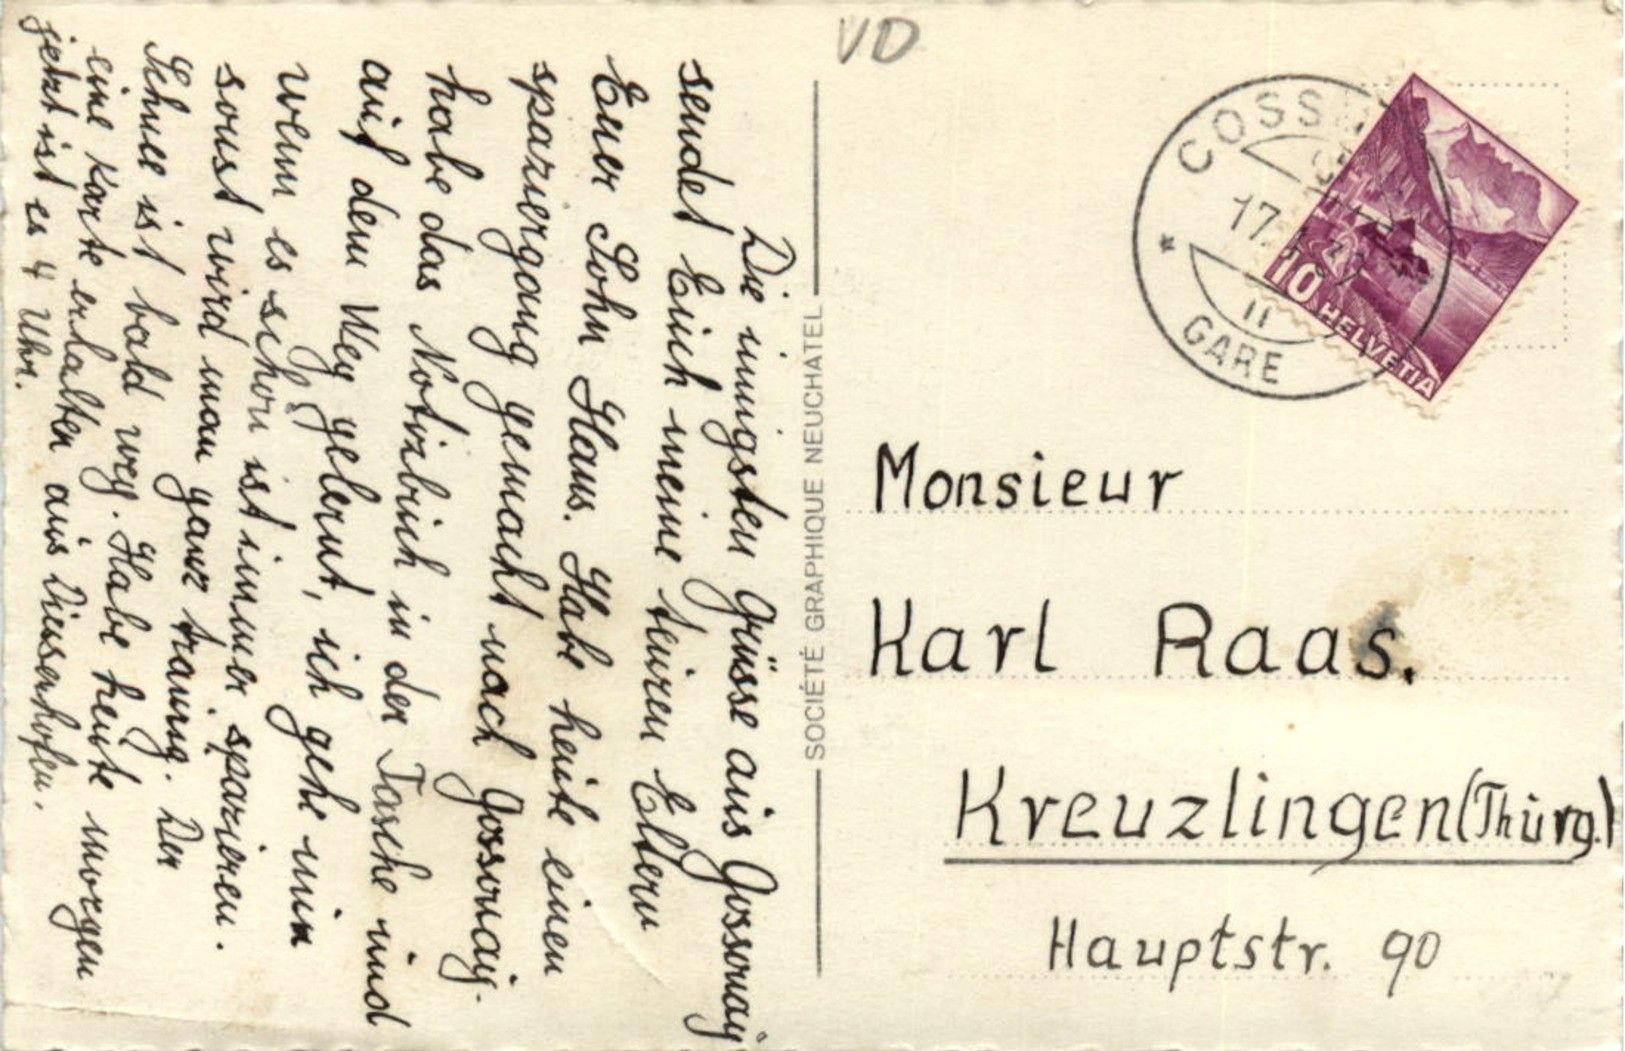 VD
Die innigsten Grüsse aus Gossonay
sendet Euch meine teuren Eltern
Euer Sohn Hans. Habe heute einen
spaziergang gemacht nach Gossonay.
habe das Notizbuch in der Tasche und
auf dem Weg gelernt, ich gehe nun
wenn es schön ist immer spazieren.
sonst wird man ganz traurig. Der
Schnee ist bald weg. Habe heute morgen
eine Karte erhalten aus Diessenhofen.
jetzt ist es 4 Uhr.
SOCIÉTÉ GRAPHIQUE NEUCHATEL
17.
II
GARE
10 HELVETIA
Monsieur
Karl Raas.
Kreuzlingen (Thurg.)
Hauptstr. 90